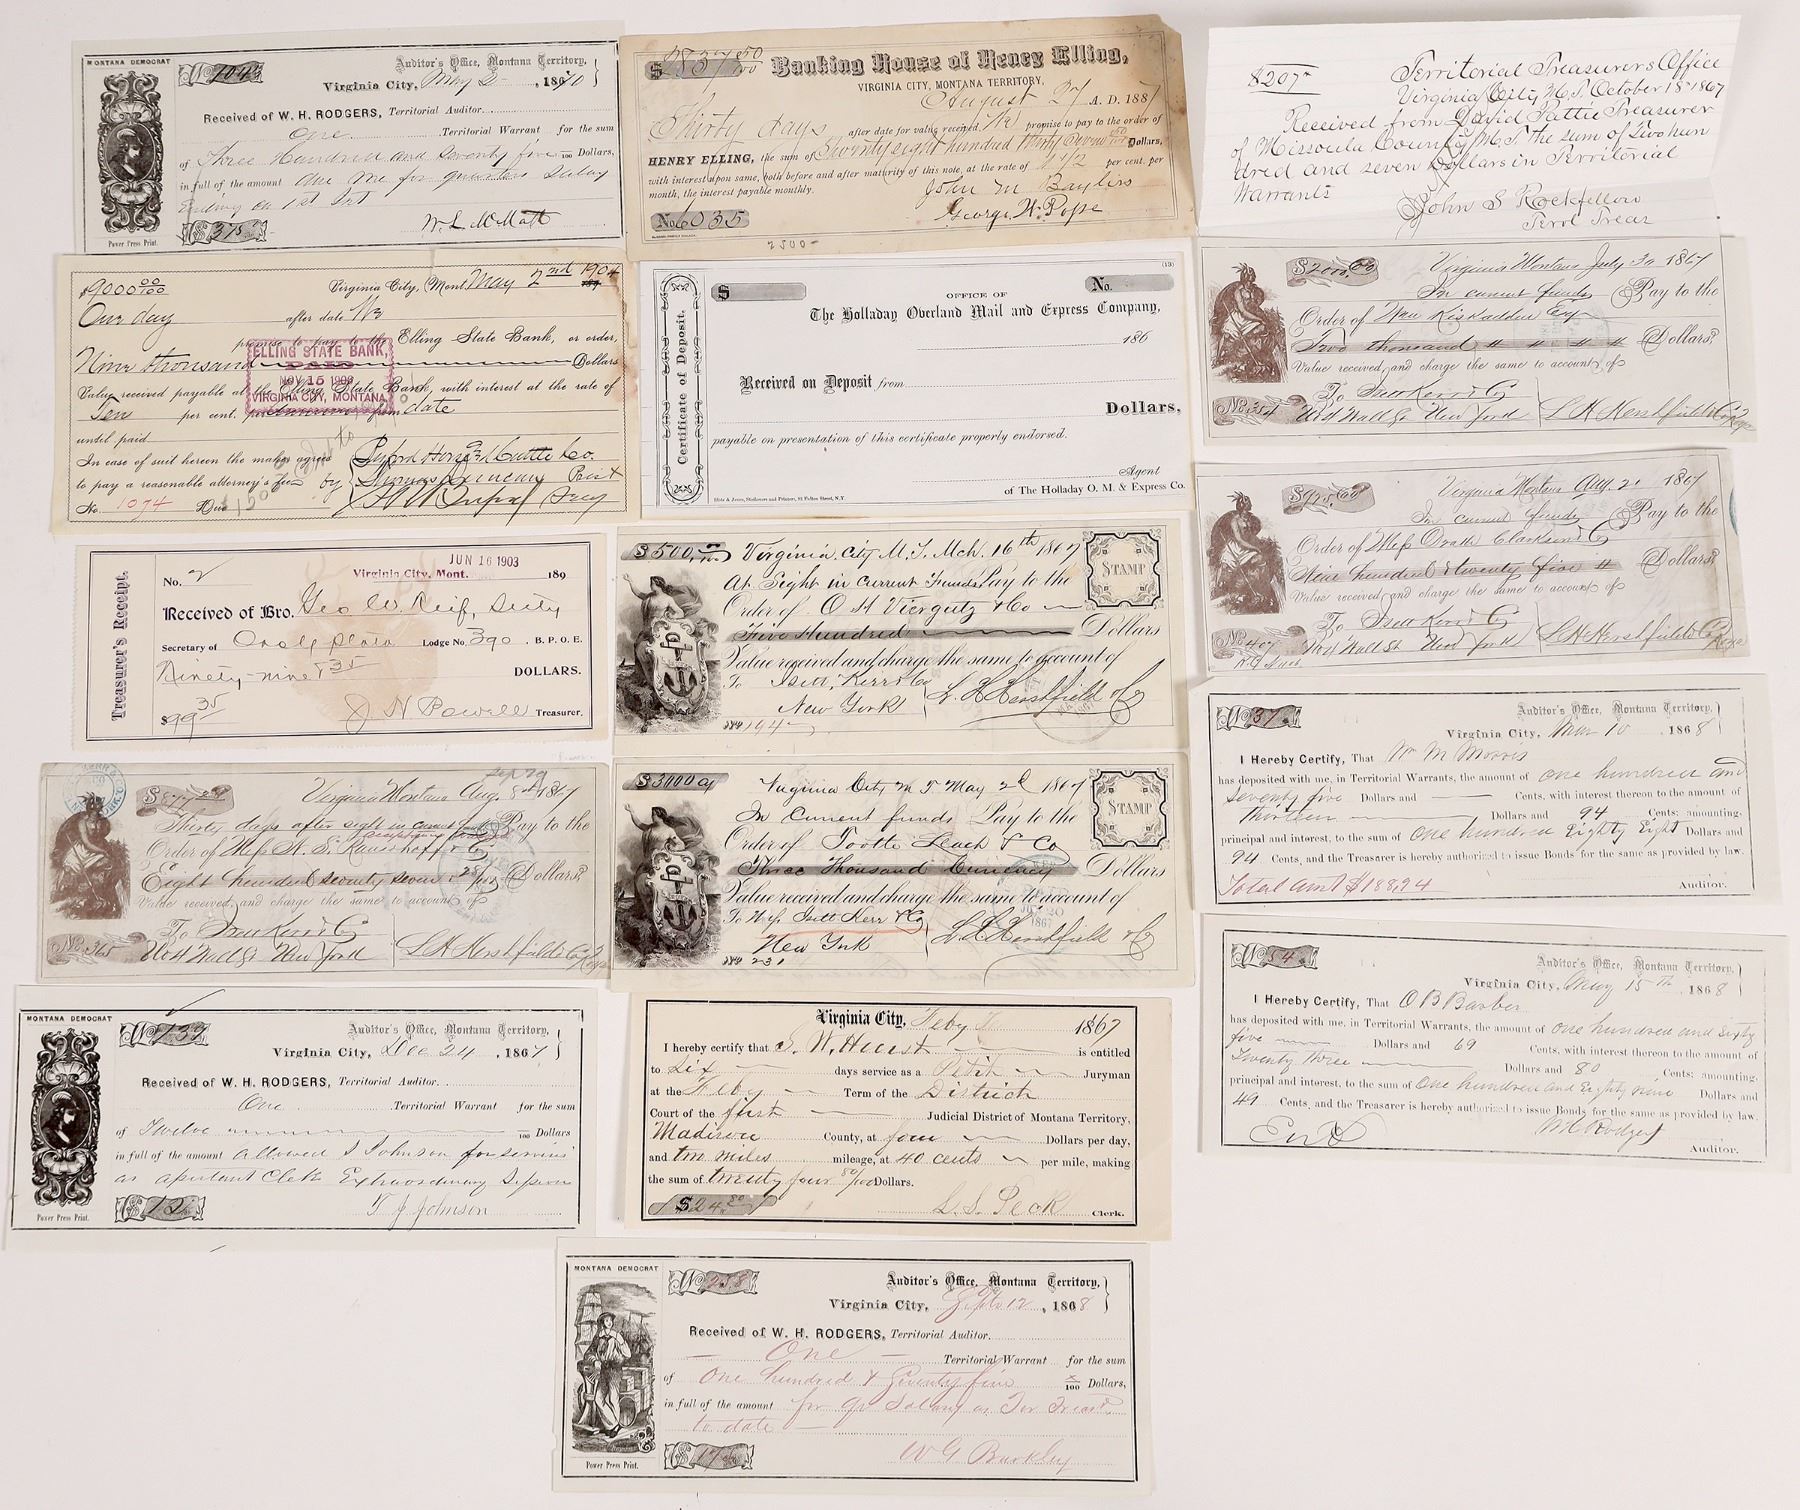 MONTANA DEMOCRAT
No 104
Auditor's Office, Montana Territory,
Virginia City, May 2 , 1870
Received of W. H. RODGERS, Territorial Auditor
One Territorial Warrant for the sum
of Three Hundred and Seventy five /100 Dollars,
in full of the amount due me for quarters Salary
Ending on 1st
$375
W. L. McMath
Power Press Print.
$2837 50/100 Banking House of Henry Elling,
VIRGINIA CITY, MONTANA TERRITORY,
August 27 A. D. 1887
Thirty days after date for value received We promise to pay to the order of
HENRY ELLING, the sum of Twenty eight hundred thirty seven 50/100 Dollars,
with interest upon same, both before and after maturity of this note, at the rate of 1 1/2 per cent. per
month, the interest payable monthly.
John M Baylis
George H. Pope
No. 6035
2500-
$207
Territorial Treasurers Office
Virginia City M.T. October 18th 1867
Received from David Pattie Treasurer
of Missoula County M.T. The sum of Two hun
dred and seven Dollars in Territorial
Warrants
John S Rockfellow
Terrl Trear
$9000 00/100 Virginia City, Mont. May 2nd 1904
One day after date We
promise to pay to the Elling State Bank, or order,
Nine thousand Dollars
Value received payable at the Elling State Bank, with interest at the rate of
Ten per cent. per from date
until paid
In case of suit hereon the maker agrees
to pay a reasonable attorney's fee
Buford Horse & Cattle Co.
by Thomas Duncan Prest
Secy
No. 1074 Due
ELLING STATE BANK,
PAID
NOV 15 1909
VIRGINIA CITY, MONTANA
(13)
Certificate of Deposit.
$ No.
OFFICE OF
The Holladay Overland Mail and Express Company,
186
Received on Deposit from
Dollars,
payable on presentation of this certificate properly endorsed.
Agent
of The Holladay O. M. & Express Co.
$2000.00 Virginia Montana July 30 1867
In current funds Pay to the
Order of Wm Kiskadden
Two thousand Dollars,
Value received, and charge the same to account of
To Isett Kerr & Co
No 4 Wall St New York L H Hershfield & Co
No. 354
$925.00 Virginia Montana Aug. 2 1867
In current funds Pay to the
Order of Mess Clarkson & Co
Nine hundred & twenty five Dollars,
Value received, and charge the same to account of
To Isett Kerr & Co
No 4 Wall St New York L H Hershfield & Co
No. 407
Treasurer's Receipt.
JUN 16 1903
No. 2 Virginia City, Mont. 189
Received of Bro. Geo W Reif, Secty
Secretary of Lodge No. 390 . B. P. O. E.
Ninety-nine & 35 DOLLARS.
$99 35 J H Powell Treasurer.
$500 Virginia City M.T. Mch. 16th 1867
STAMP
At Sight in Current Funds Pay to the
Order of O H Viergutz & Co
Five Hundred Dollars
Value received and charge the same to account of
To Isett, Kerr & Co
New York L H Hershfield & Co
No 194
No 37
Auditor's Office, Montana Territory,
Virginia City, Mar 10 , 1868
I Hereby Certify, That Wm M Morris
has deposited with me, in Territorial Warrants, the amount of One hundred and
Seventy five Dollars and Cents, with interest thereon to the amount of
Thirteen Dollars and 94 Cents: amounting,
principal and interest, to the sum of One hundred Eighty Eight Dollars and
94 Cents, and the Treasurer is hereby authorized to issue Bonds for the same as provided by law.
Total amt $188,94
Auditor.
$877 Virginia Montana Aug. 8 1867
Thirty days after sight in current funds Pay to the
Order of Mess
Eight hundred seventy seven Dollars,
Value received, and charge the same to account of
To Isett Kerr & Co
No 4 Wall St New York L H Hershfield & Co
No. 365
$3000 Cy Virginia City M T May 2d 1867
STAMP
In Current funds Pay to the
Order of Tootle Leach & Co
Three Thousand Currency Dollars
Value received and charge the same to account of
To Mess Isett Kerr & Co
New York L H Hershfield & Co
No 231
No 54
Auditor's Office, Montana Territory,
Virginia City, May 15th , 1868
I Hereby Certify, That O B Barber
has deposited with me, in Territorial Warrants, the amount of One hundred and Sixty
five Dollars and 69 Cents, with interest thereon to the amount of
Twenty three Dollars and 80 Cents: amounting,
principal and interest, to the sum of One hundred and Eighty nine Dollars and
49 Cents, and the Treasurer is hereby authorized to issue Bonds for the same as provided by law.
W H Rodgers
Auditor.
MONTANA DEMOCRAT
No 739
Auditor's Office, Montana Territory,
Virginia City, Dec 24 , 1867
Received of W. H. RODGERS, Territorial Auditor.
One Territorial Warrant for the sum
of Twelve /100 Dollars
in full of the amount allowed T J Johnson for services
as Clerk Extraordinary Session
$12
T J Johnson
Power Press Print.
Virginia City, Feby 1867
I hereby certify that T. W. Hurst is entitled
to six days service as a Petit Juryman
at the Feby Term of the District
Court of the first Judicial District of Montana Territory,
Madison County, at four Dollars per day,
and two miles mileage, at 40 cents per mile, making
the sum of twenty four 80/100 Dollars.
$24.80 L. S. Peck Clerk.
MONTANA DEMOCRAT
No 258
Auditor's Office, Montana Territory,
Virginia City, Sept 12 , 1868
Received of W. H. RODGERS, Territorial Auditor.
One Territorial Warrant for the sum
of One hundred & Seventy five x/100 Dollars,
in full of the amount for qr Salary as Ter Treas
to date
$175
W G Barkley
Power Press Print.